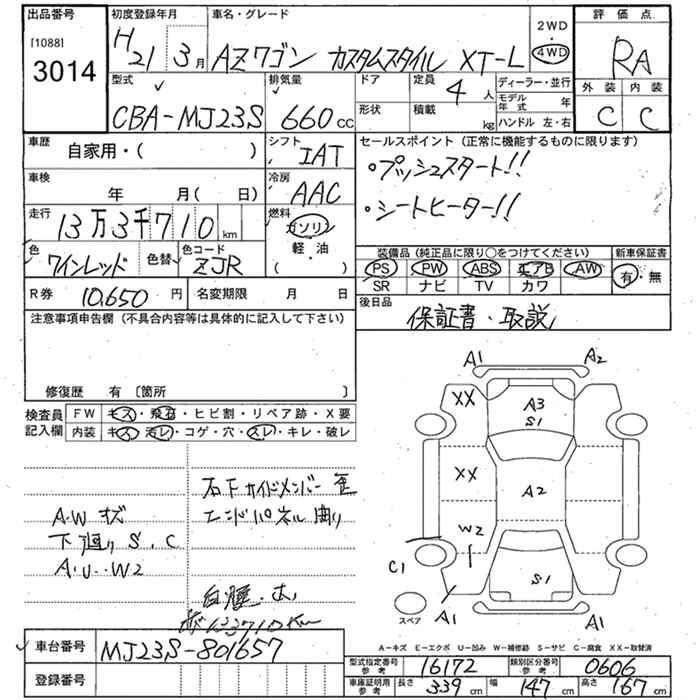 出品番号 初度登録年月 車名・グレード 2WD・4WD 評価点
[1088] 3014
H21 3月 AZワゴン カスタムスタイル XT-L RA
型式 排気量 ドア 定員 4人 ディーラー・並行 外装 内装
CBA-MJ23S 660cc 形状 積載 kg モデル年式 年 C C
ハンドル 左・右
車歴 自家用・( ) シフト IAT セールスポイント (正常に機能するものに限ります)
車検 年 月( 日) 冷房 AAC ・プッシュスタート!!
走行 13万3千710km 燃料 ガソリン 軽・油 ( ) ・シートヒーター!!
色 ワインレッド 色替 色コード ZJR
装備品 (純正品に限り○をつけてください) 新車保証書
PS PW ABS エアB AW 有・無
SR ナビ TV カワ
R券 10,650円 名変期限 月 日 後日品
保証書・取説
注意事項申告欄 (不具合内容等は具体的に記入して下さい)
修復歴 有 〔箇所 〕
検査員記入欄 FW キズ・飛石・ヒビ割・リペア跡・X要
内装 キズ・汚レ・コゲ・穴・スレ・キレ・破レ
A1 A2
XX A3 S1
XX A2
W2 S1
C1
A1 A1
スペア
右Fサイドメンバー歪
エンドパネル曲り
A.W キズ
下廻り S.C
A.U...W2
133710km
A−キズ E−エクボ U−凹み W−補修跡 S−サビ C−腐食 XX−取替済
車台番号 MJ23S-801657
登録番号
型式指定番号 参考 16172 類別区分番号 参考 0606
車庫証明用 参考 長さ 339cm 幅 147cm 高さ 167cm